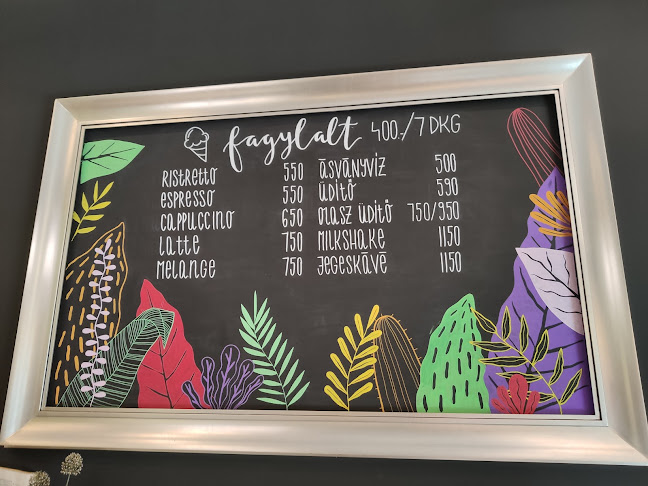 fagylalt 400./7 DKG
RISTRETTO 550
ESPRESSO 550
CAPPUCCINO 650
LATTE 750
MELANGE 750
ÁSVÁNYVÍZ 500
ÜDÍTŐ 590
OLASZ ÜDÍTŐ 750/950
MILKSHAKE 1150
JEGESKÁVÉ 1150